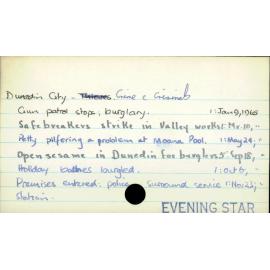 Dunedin City - Thieves Crime & Criminals
Gun patrol stops, burglary. 1: Jan 9, 1965
Safebreakers strike in Valley works: Mr. 10, "
Petty pilfering a problem at Moana Pool. 1: May 24, "
Open sesame in Dunedin for burglars 5 Sep 18, "
Holiday burgled. 1: Oct 6, "
Premises entered: police surround service 1: Nov 23, "
station.
EVENING STAR